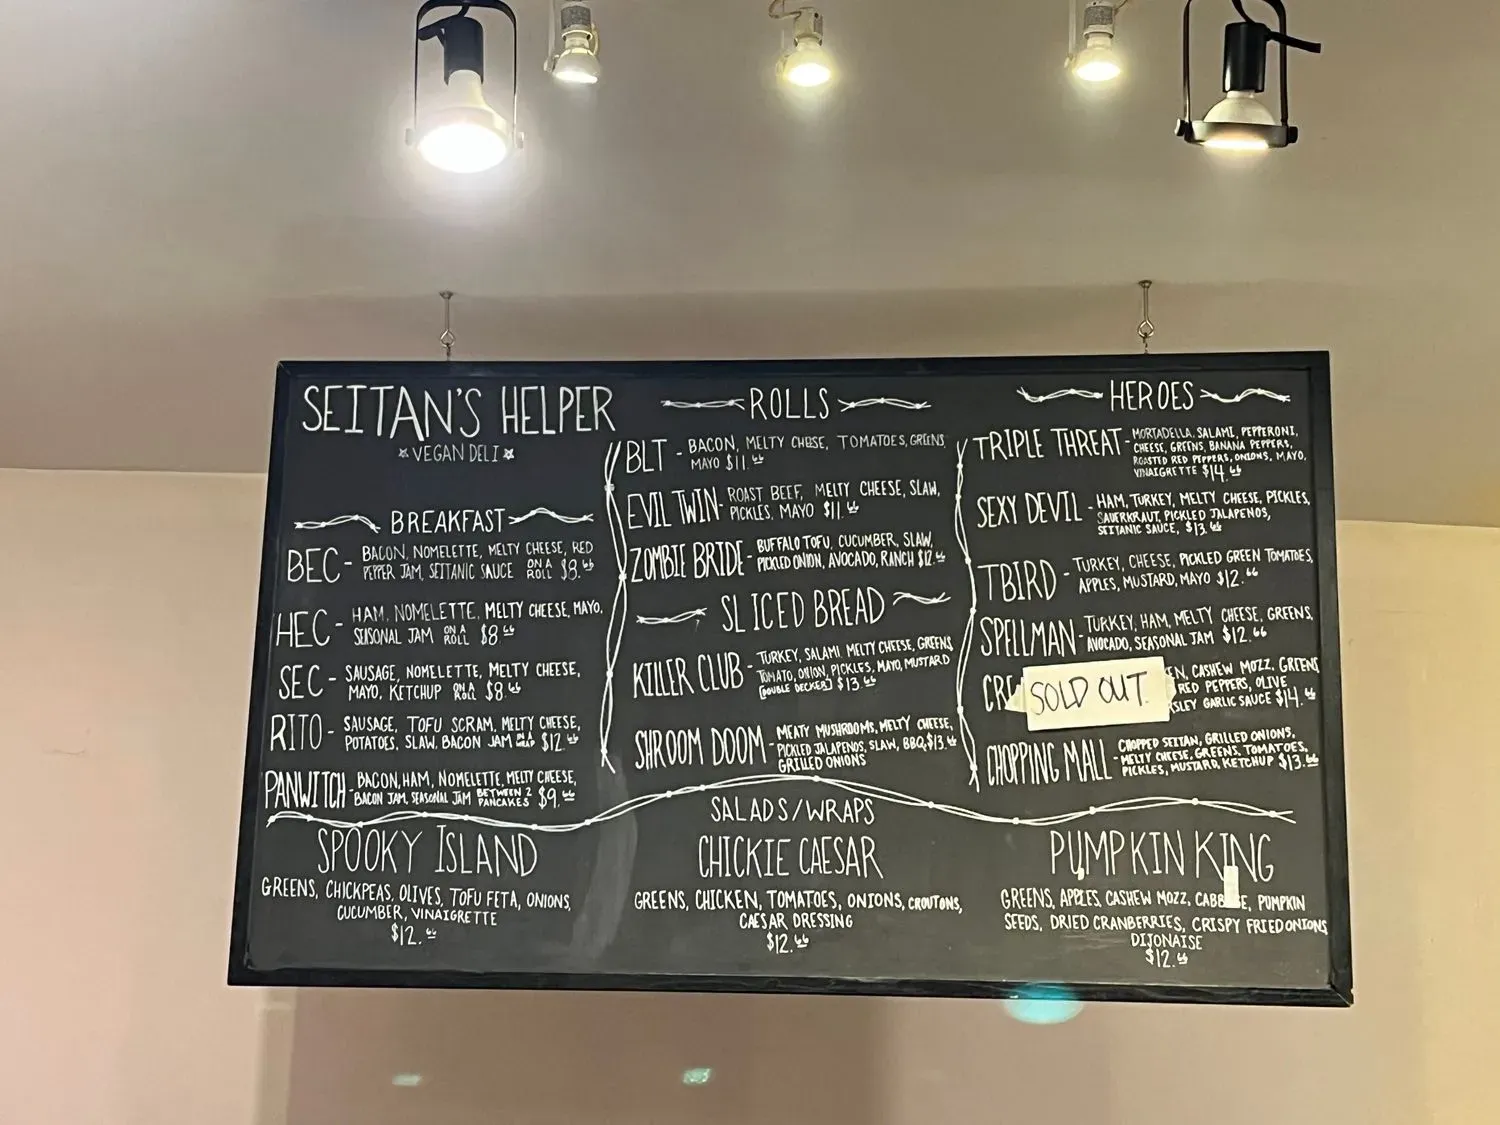 SEITAN'S HELPER
VEGAN DELI
BREAKFAST
BEC - BACON, NOMELETTE, MELTY CHEESE, RED
PEPPER JAM, SEITANIC SAUCE ON A ROLL $8.66
HEC - HAM, NOMELETTE, MELTY CHEESE, MAYO,
SEASONAL JAM ON A ROLL $8.66
SEC - SAUSAGE, NOMELETTE, MELTY CHEESE,
MAYO, KETCHUP ON A ROLL $8.66
RITO - SAUSAGE, TOFU SCRAM, MELTY CHEESE,
POTATOES, SLAW, BACON JAM IN A WRAP $12.66
PANWITCH - BACON, HAM, NOMELETTE, MELTY CHEESE,
BACON JAM, SEASONAL JAM BETWEEN 2 PANCAKES $9.66
ROLLS
BLT - BACON, MELTY CHEESE, TOMATOES, GREENS
MAYO $11.66
EVIL TWIN - ROAST BEEF, MELTY CHEESE, SLAW,
PICKLES, MAYO $11.66
ZOMBIE BRIDE - BUFFALO TOFU, CUCUMBER, SLAW,
PICKLED ONION, AVOCADO, RANCH $12.66
SLICED BREAD
KILLER CLUB - TURKEY, SALAMI, MELTY CHEESE, GREENS,
TOMATO, ONION, PICKLES, MAYO, MUSTARD
[DOUBLE DECKER] $13.66
SHROOM DOOM - MEATY MUSHROOMS, MELTY CHEESE,
PICKLED JALAPENOS, SLAW, BBQ, $13.66
GRILLED ONIONS
HEROES
TRIPLE THREAT - MORTADELLA, SALAMI, PEPPERONI,
CHEESE, GREENS, BANANA PEPPERS,
ROASTED RED PEPPERS, ONIONS, MAYO,
VINAIGRETTE $14.66
SEXY DEVIL - HAM, TURKEY, MELTY CHEESE, PICKLES,
SAUERKRAUT, PICKLED JALAPENOS,
SEITANIC SAUCE, $13.66
TBIRD - TURKEY, CHEESE, PICKLED GREEN TOMATOES,
APPLES, MUSTARD, MAYO $12.66
SPELLMAN - TURKEY, HAM, MELTY CHEESE, GREENS,
AVOCADO, SEASONAL JAM $12.66
SOLD OUT
CASHEW MOZZ, GREENS
RED PEPPERS, OLIVE
GARLIC SAUCE $14.66
CHOPPING MALL - CHOPPED SEITAN, GRILLED ONIONS,
MELTY CHEESE, GREENS, TOMATOES,
PICKLES, MUSTARD, KETCHUP $13.66
SALADS/WRAPS
SPOOKY ISLAND
GREENS, CHICKPEAS, OLIVES, TOFU FETA, ONIONS,
CUCUMBER, VINAIGRETTE
$12.66
CHICKIE CAESAR
GREENS, CHICKEN, TOMATOES, ONIONS, CROUTONS,
CAESAR DRESSING
$12.66
PUMPKIN KING
GREENS, APPLES, CASHEW MOZZ, CABBAGE, PUMPKIN
SEEDS, DRIED CRANBERRIES, CRISPY FRIED ONIONS,
DIJONAISE
$12.66